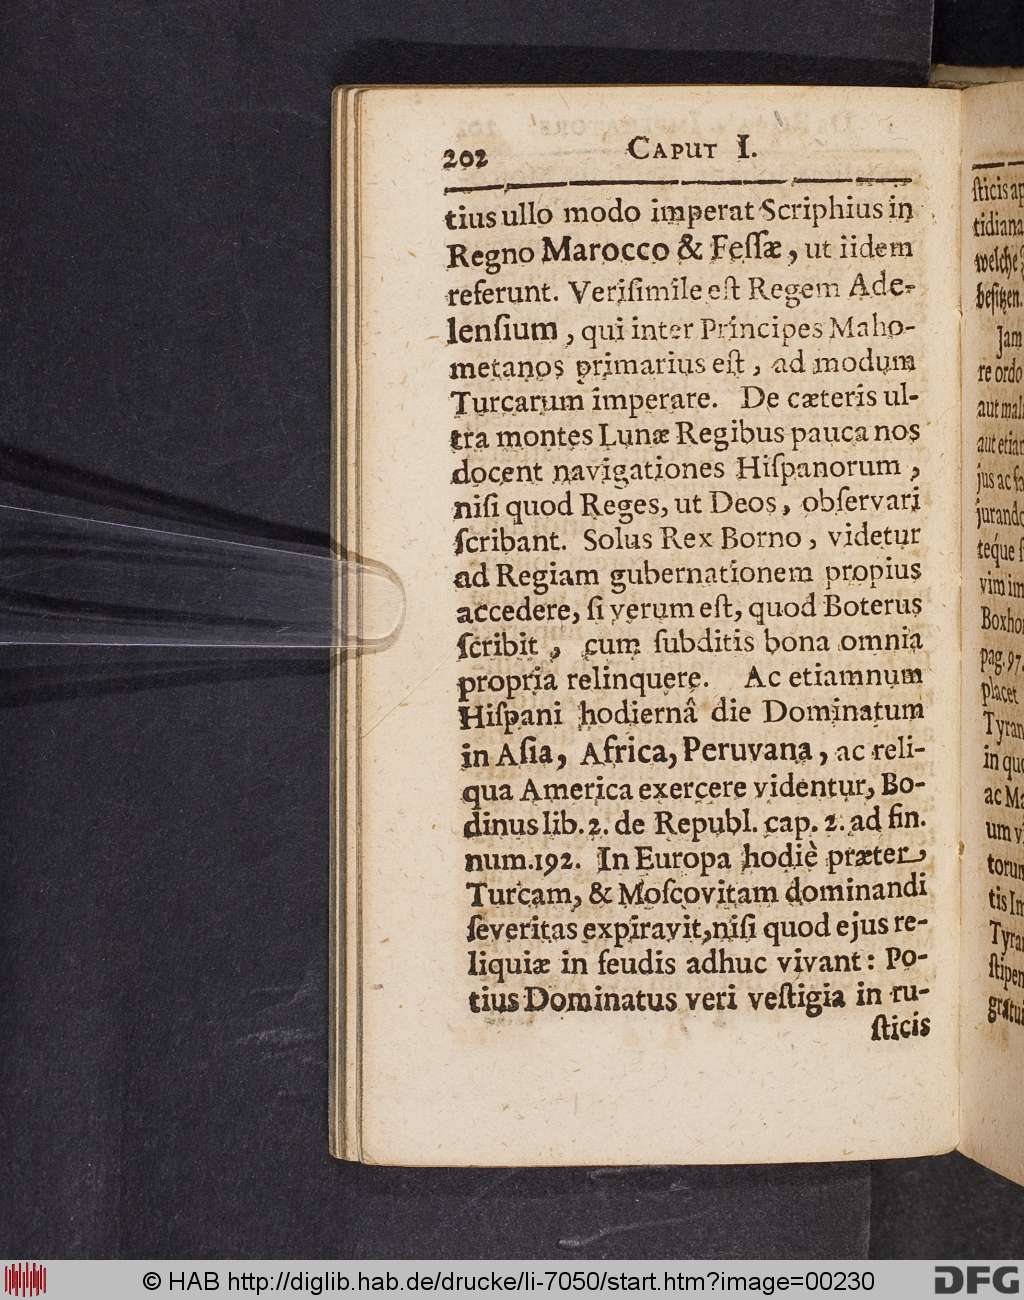 202 CAPUT I.
tius ullo modo imperat Scriphius in
Regno Marocco & Feſſæ, ut iidem
referunt. Veriſimile eſt Regem Ade-
lenſium, qui inter Principes Maho-
metanos primarius eſt, ad modum
Turcarum imperare. De cæteris ul-
tra montes Lunæ Regibus pauca nos
docent navigationes Hiſpanorum,
niſi quod Reges, ut Deos, obſervari
ſcribant. Solus Rex Borno, videtur
ad Regiam gubernationem propius
accedere, ſi verum eſt, quod Boterus
ſcribit, cum ſubditis bona omnia
propria relinquere. Ac etiamnum
Hiſpani hodiernâ die Dominatum
in Aſia, Africa, Peruvana, ac reli-
qua America exercere videntur, Bo-
dinus lib. 2. de Republ. cap. 2. ad fin.
num. 192. In Europa hodiè præter
Turcam, & Moſcovitam dominandi
ſeveritas expiravit, niſi quod ejus re-
liquiæ in feudis adhuc vivant: Po-
tius Dominatus veri veſtigia in ru-
ſticis
ſticis
tidiana
welche
beſitzen.
Jam
re ordo
aut
aut
jus ac
teque
vim
pag. 97.
placet
in
ac
um
tis
© HAB http://diglib.hab.de/drucke/li-7050/start.htm?image=00230
DFG